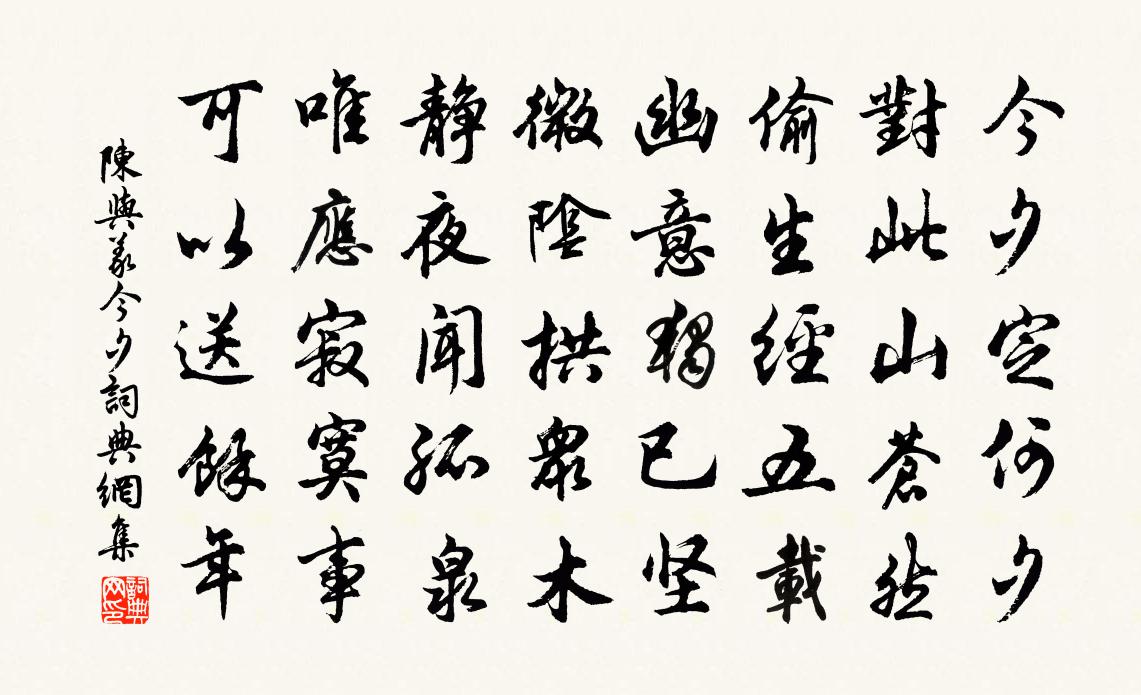 今夕定何夕
對此山蒼然
偷生經五載
幽意獨已坚
微陰拱眾木
靜夜聞孤泉
唯應寂寞事
可以送餘年
陳與義今夕詞典網集
詞典
网印